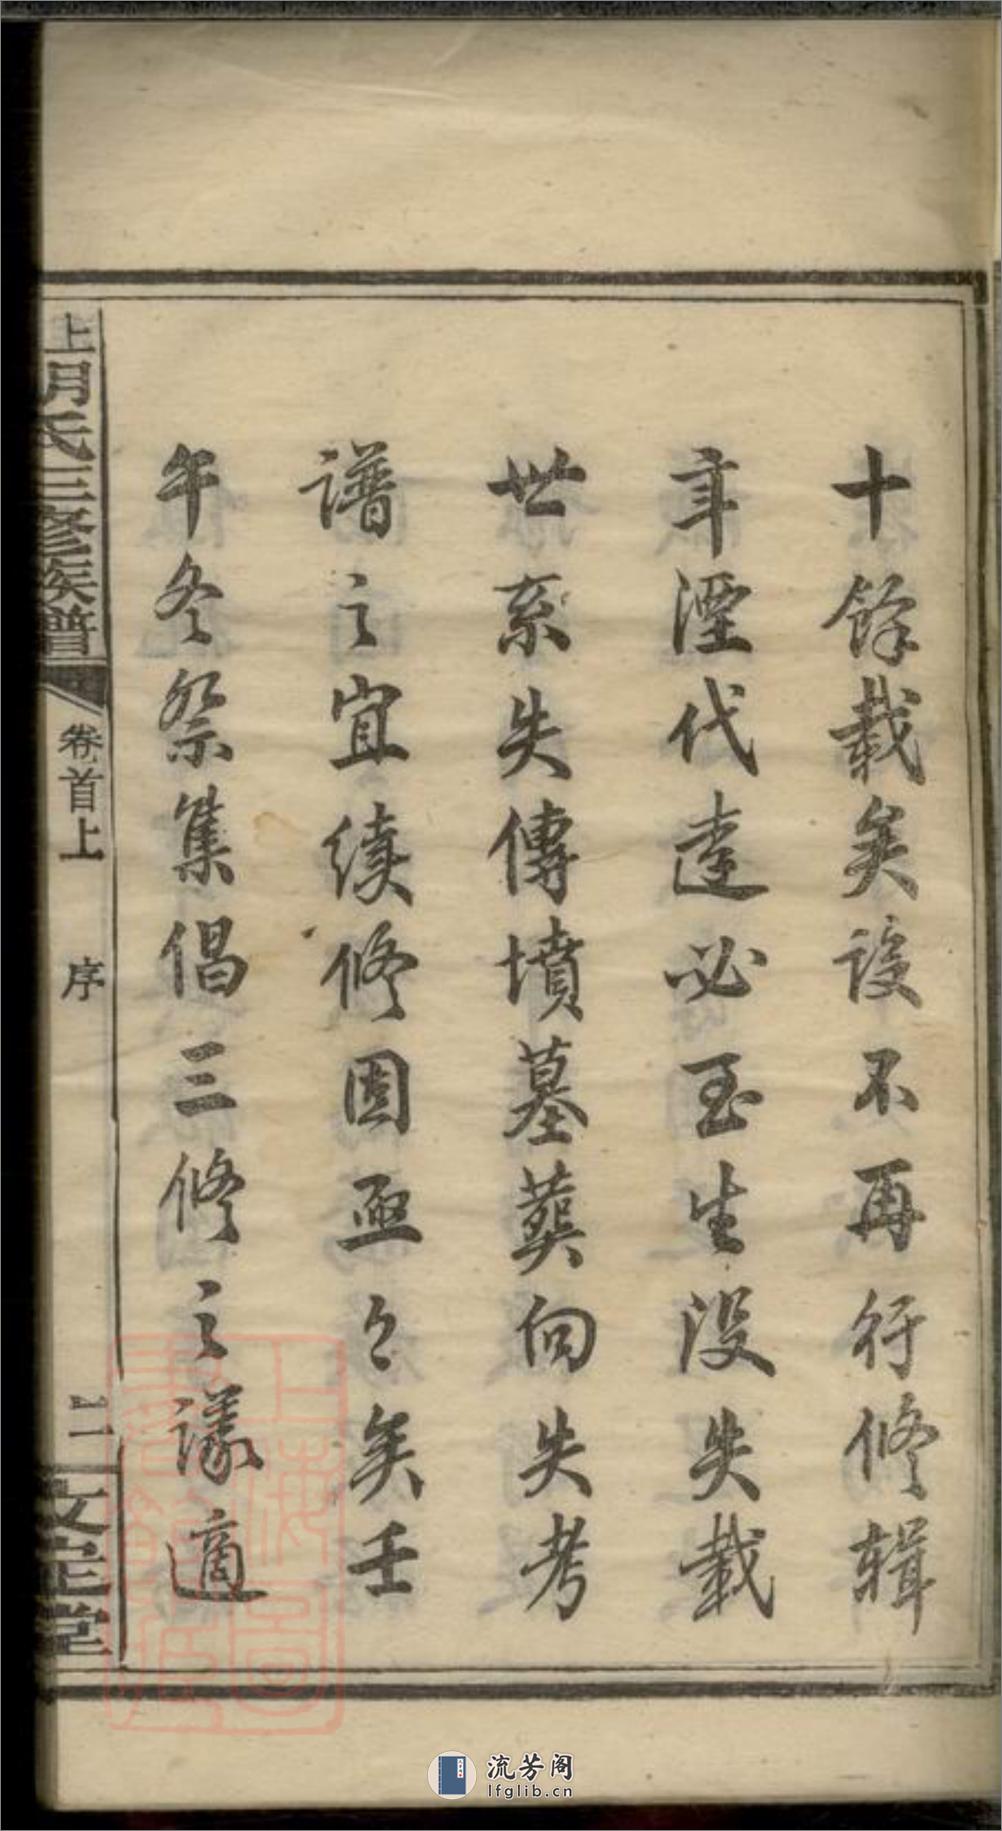 十餘載矣設不再行修輯
年湮代遠必至生沒失載
世系失傳墳墓葬向失考
譜之宜續修固亟々矣壬
午冬祭集倡三修之議適
上湖氏三修族譜
卷首上
序
二
文定堂
上海圖書館藏
流芳阁
lfglib.cn